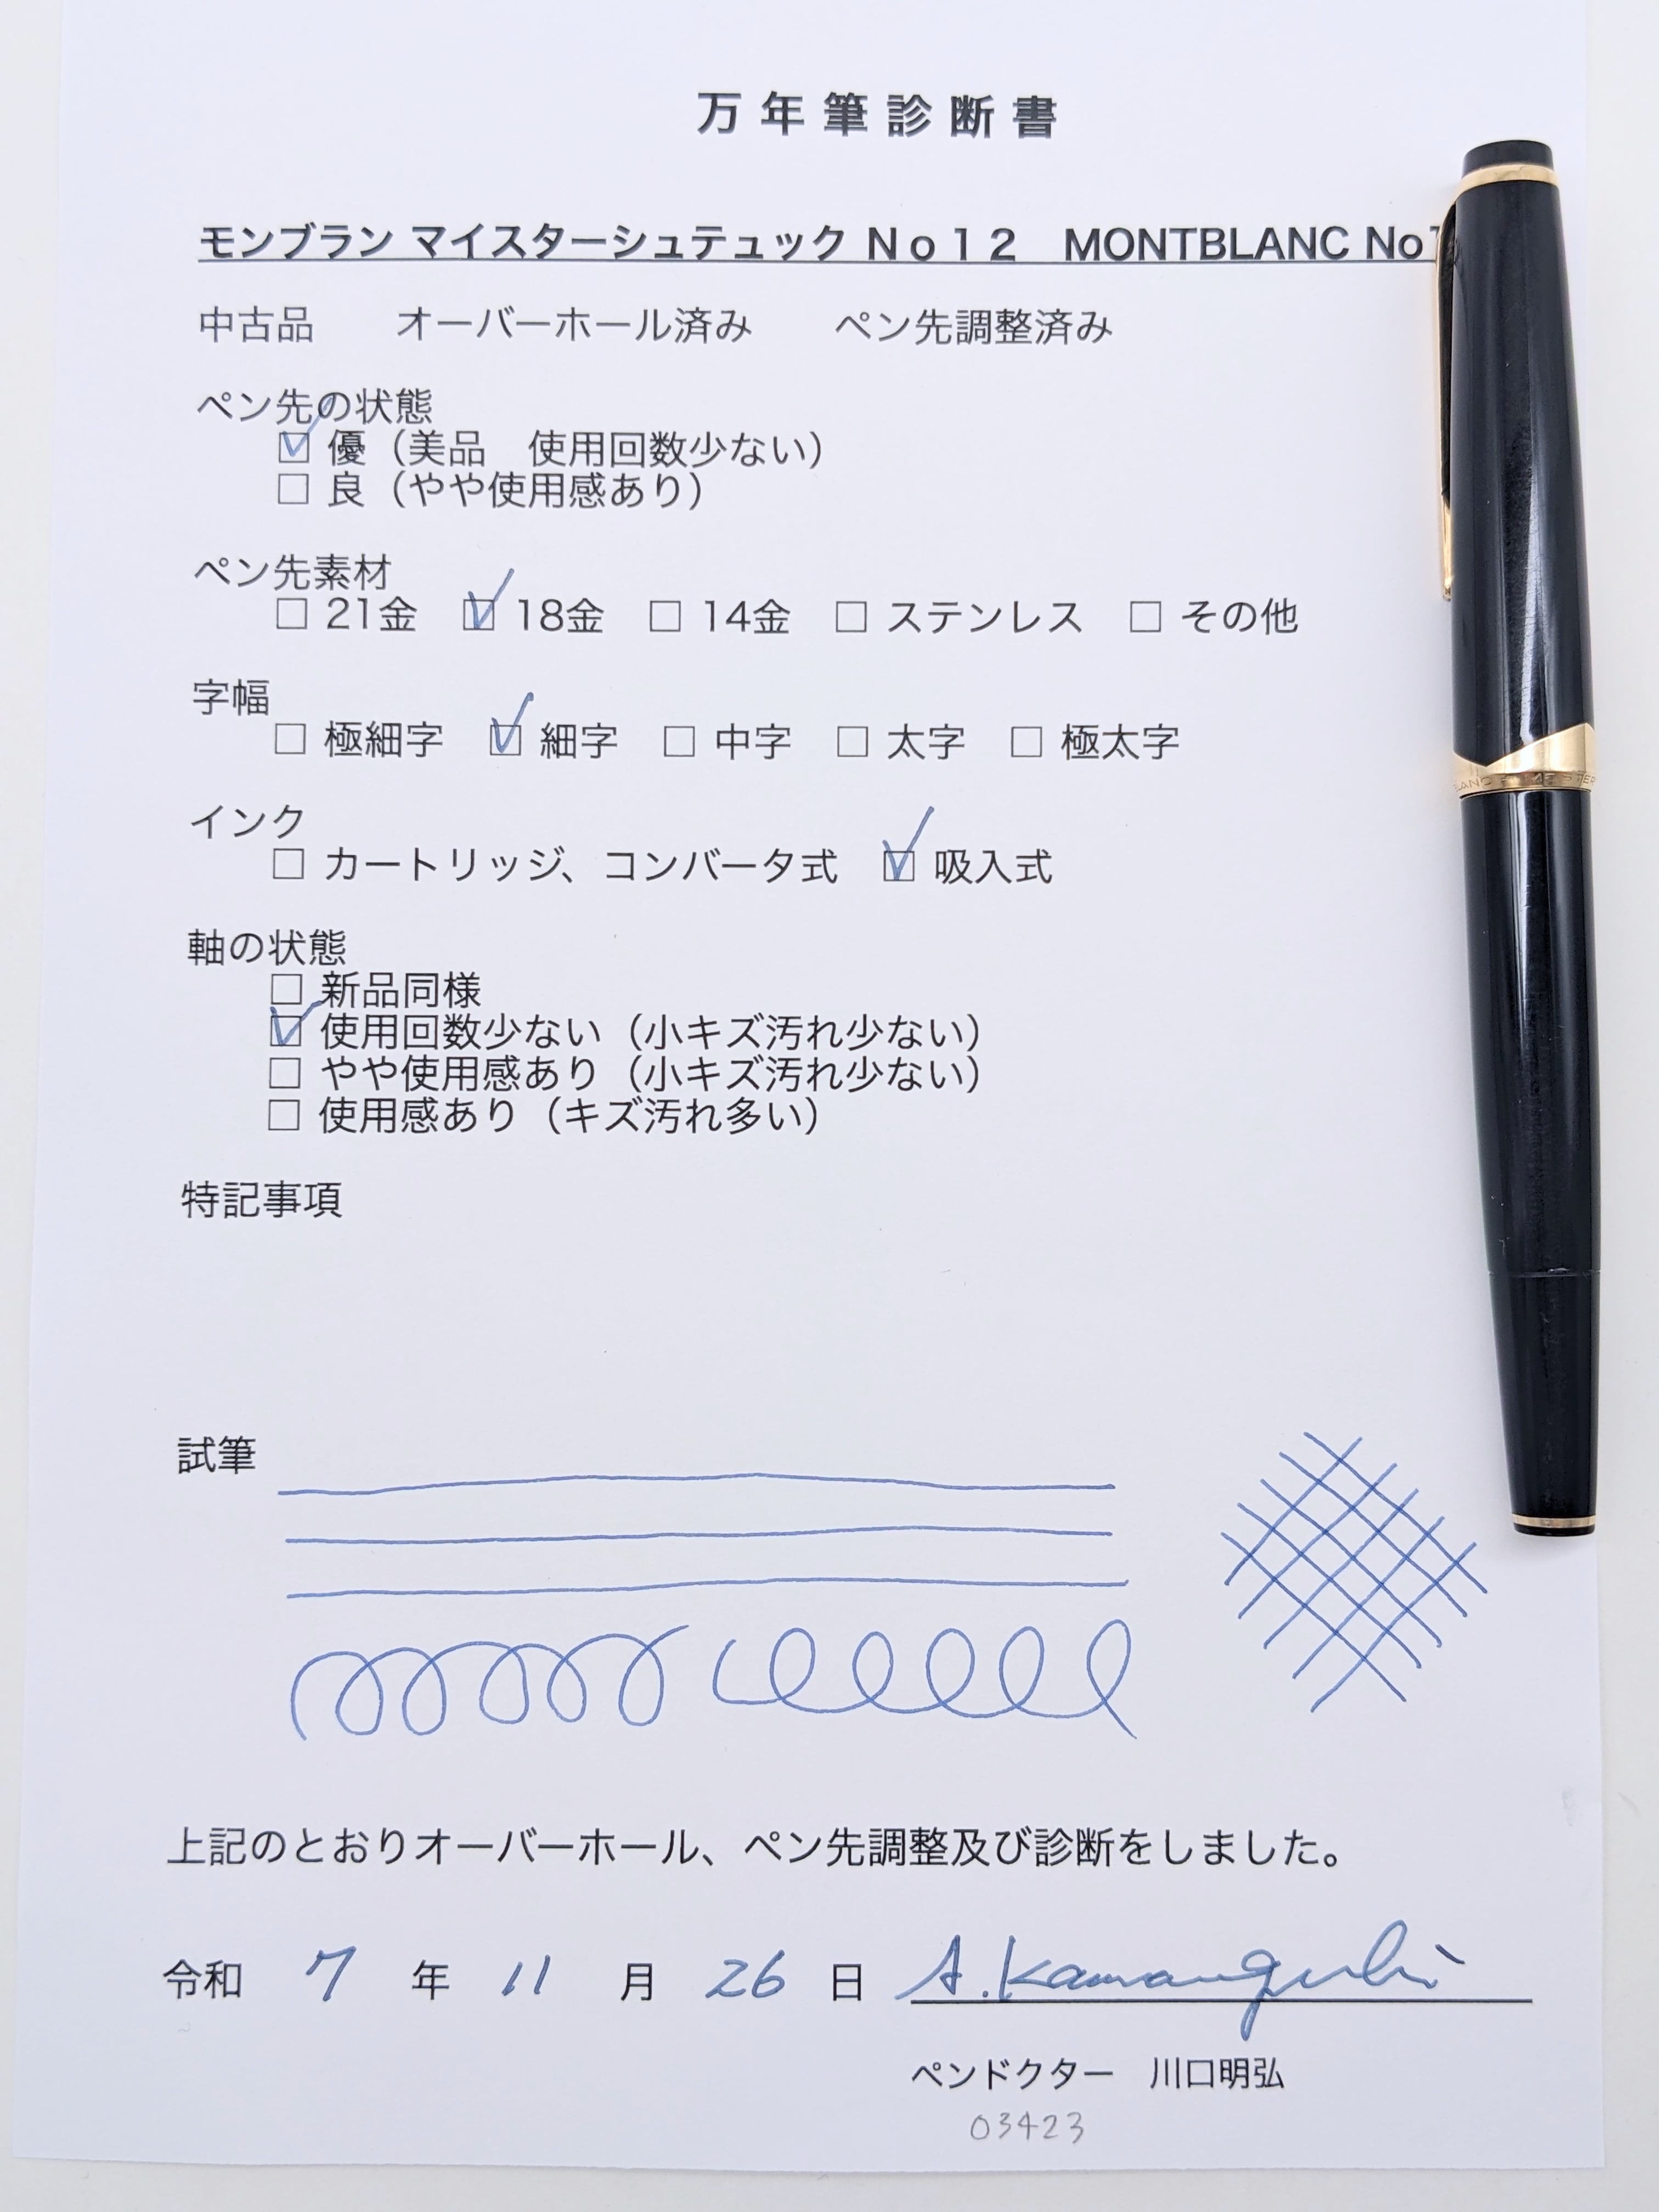 万年筆診断書
モンブラン マイスターシュテュック Ｎｏ１２　MONTBLANC No1
中古品　　オーバーホール済み　　ペン先調整済み
ペン先の状態
☑ 優（美品　使用回数少ない）
□ 良（やや使用感あり）
ペン先素材
□ 21金　☑ 18金　□ 14金　□ ステンレス　□ その他
字幅
□ 極細字　☑ 細字　□ 中字　□ 太字　□ 極太字
インク
□ カートリッジ、コンバータ式　☑ 吸入式
軸の状態
□ 新品同様
☑ 使用回数少ない（小キズ汚れ少ない）
□ やや使用感あり（小キズ汚れ少ない）
□ 使用感あり（キズ汚れ多い）
特記事項
試筆
上記のとおりオーバーホール、ペン先調整及び診断をしました。
令和 7 年 11 月 26 日 A.Kawaguchi
ペンドクター　川口明弘
03423